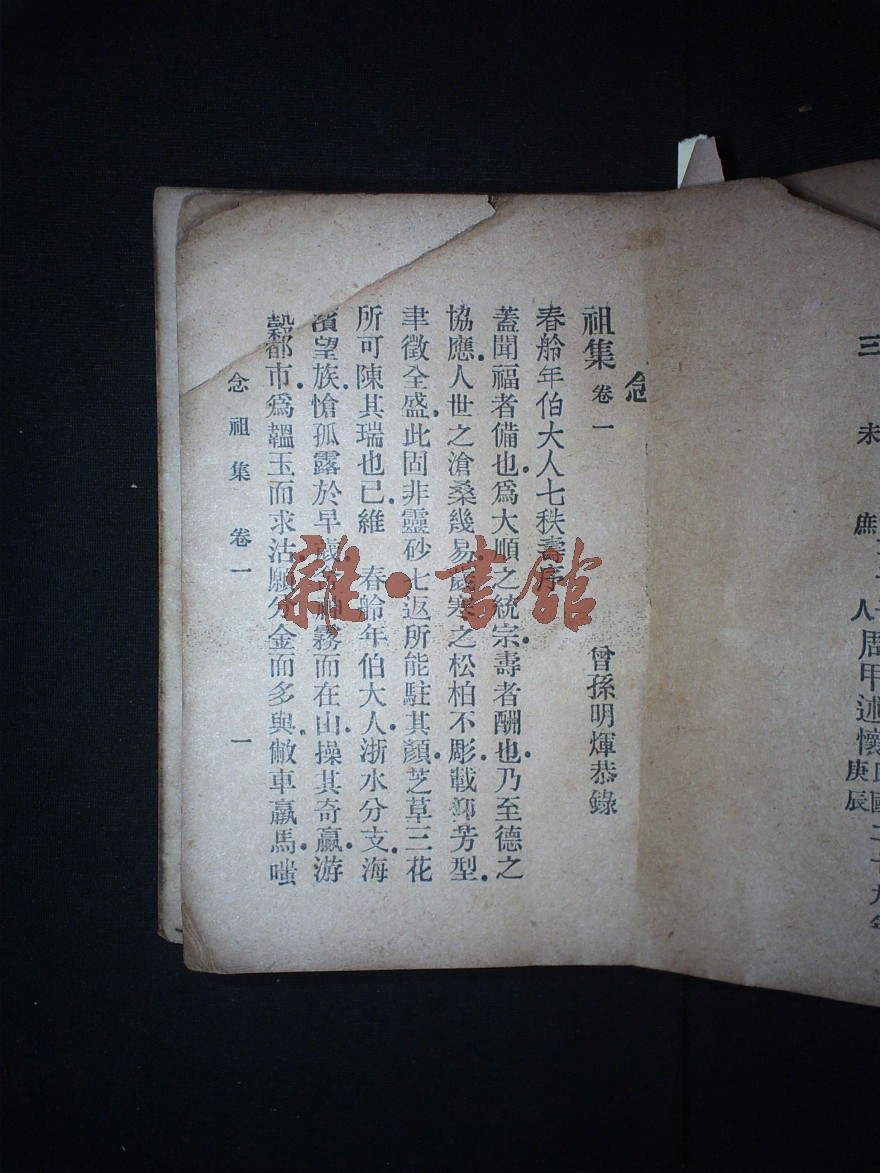 三
未
庶
人
周甲述懷
庚辰
念
祖集 卷一
曾孫明煇恭錄
春舲年伯大人七秩壽序
蓋聞福者備也爲大順之統宗壽者酬也乃至德之
協應人世之滄桑幾易歲寒之松柏不彫載卻芳型
聿徵全盛此固非靈砂七返所能駐其顏芝草三花
所可陳其瑞也已維 春舲年伯大人浙水分支海
濱望族愴孤露於早歲 霧而在山操其奇贏游
都市爲韞玉而求沽願分金而多與敝車羸馬嗤
念祖集 卷一 一
雜·書館